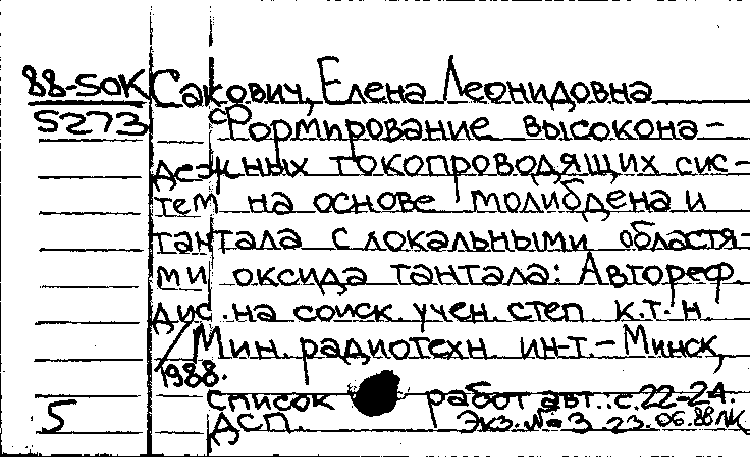 88-50К Сакович, Елена Леонидовна
5273 Формирование высокона-
дежных токопроводящих сис-
тем на основе молибдена и
тантала с локальными областя-
ми оксида тантала: Автореф.
дис. на соиск. учен. степ к.т.н.
/ Мин. радиотехн. ин-т. - Минск,
1988.
список работ авт.: с. 22-24.
5 ДСП. Экз. № 3 23.06.88